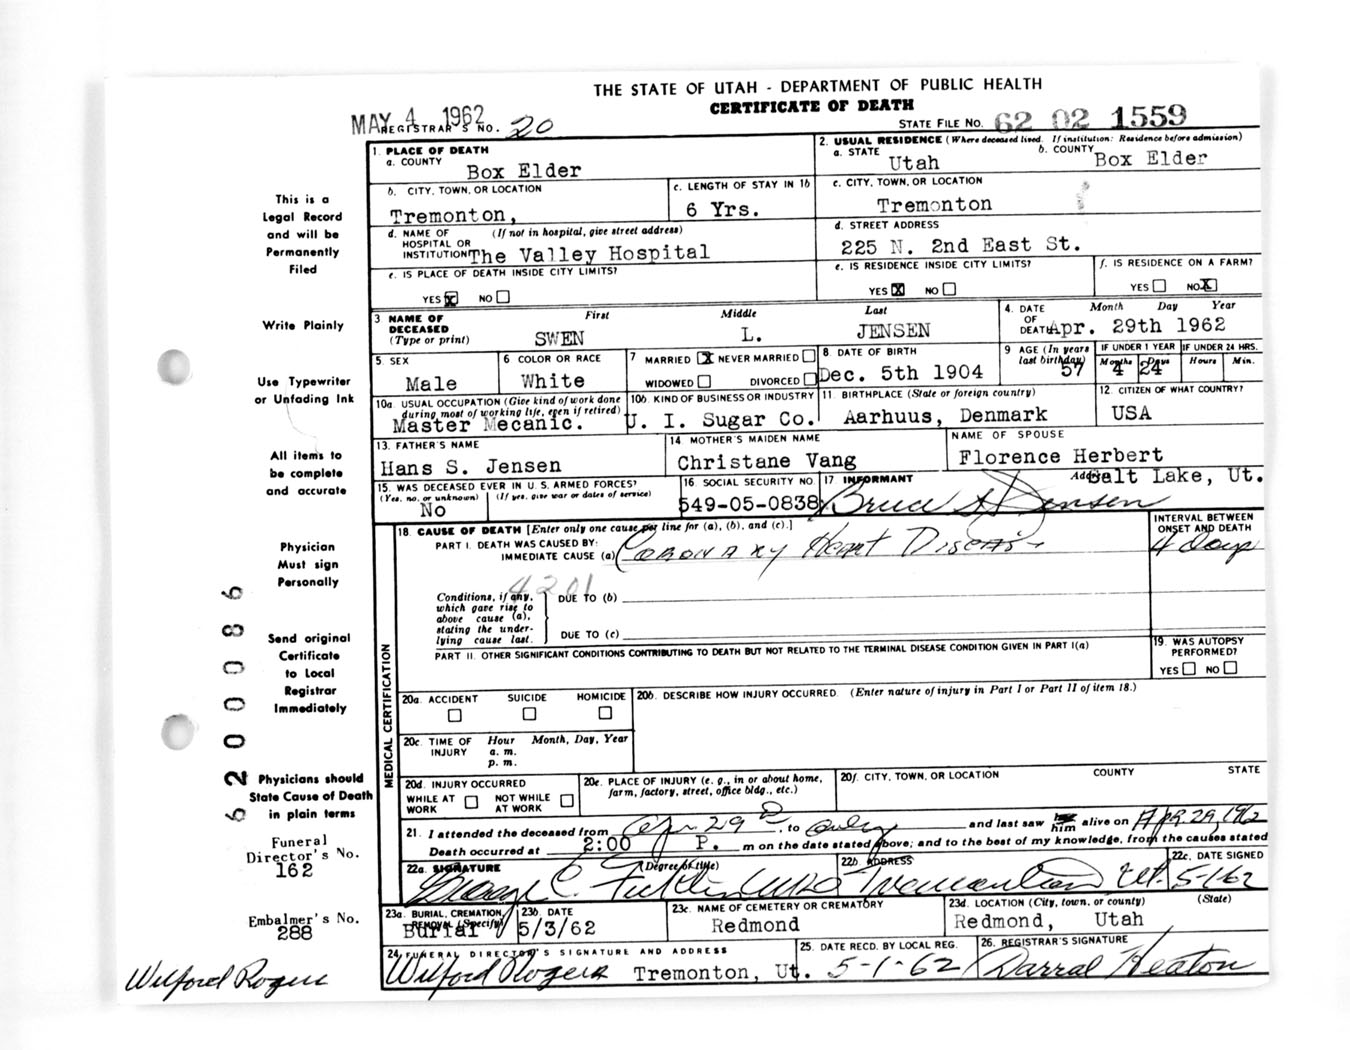 THE STATE OF UTAH - DEPARTMENT OF PUBLIC HEALTH
CERTIFICATE OF DEATH
MAY 4 1962
REGISTRAR'S NO. 20
STATE FILE NO. 62 02 1559
This is a
Legal Record
and will be
Permanently
Filed
Write Plainly
Use Typewriter
or Unfading Ink
All items to
be complete
and accurate
Physician
Must sign
Personally
Send original
Certificate
to Local
Registrar
Immediately
Physicians should
State Cause of Death
in plain terms
Funeral
Director's No.
162
Embalmer's No.
288
Wilford Rogers
6200086
1. PLACE OF DEATH
a. COUNTY
Box Elder
2. USUAL RESIDENCE (Where deceased lived. If institution: Residence before admission)
a. STATE Utah b. COUNTY Box Elder
b. CITY, TOWN, OR LOCATION
Tremonton,
c. LENGTH OF STAY IN 1b
6 Yrs.
c. CITY, TOWN, OR LOCATION
Tremonton
d. NAME OF (If not in hospital, give street address)
HOSPITAL OR
INSTITUTION The Valley Hospital
d. STREET ADDRESS
225 N. 2nd East St.
e. IS PLACE OF DEATH INSIDE CITY LIMITS?
YES X NO
e. IS RESIDENCE INSIDE CITY LIMITS?
YES X NO
f. IS RESIDENCE ON A FARM?
YES NO X
3 NAME OF DECEASED (Type or print)
First Middle Last
SWEN L. JENSEN
4. DATE OF DEATH Month Day Year
Apr. 29th 1962
5. SEX
Male
6 COLOR OR RACE
White
7 MARRIED X NEVER MARRIED
WIDOWED DIVORCED
8 DATE OF BIRTH
Dec. 5th 1904
9 AGE (In years last birthday)
57
IF UNDER 1 YEAR
Months Days
4 24
IF UNDER 24 HRS.
Hours Min.
10a. USUAL OCCUPATION (Give kind of work done
during most of working life, even if retired)
Master Mecanic.
10b. KIND OF BUSINESS OR INDUSTRY
U. I. Sugar Co.
11. BIRTHPLACE (State or foreign country)
Aarhuus, Denmark
12. CITIZEN OF WHAT COUNTRY?
USA
13. FATHER'S NAME
Hans S. Jensen
14. MOTHER'S MAIDEN NAME
Christane Vang
NAME OF SPOUSE
Florence Herbert
15. WAS DECEASED EVER IN U. S. ARMED FORCES?
(Yes, no, or unknown) (If yes, give war or dates of service)
No
16. SOCIAL SECURITY NO.
549-05-0838
17 INFORMANT Address Salt Lake, Ut.
Bruce S Jensen
MEDICAL CERTIFICATION
18. CAUSE OF DEATH [Enter only one cause per line for (a), (b), and (c).]
PART I. DEATH WAS CAUSED BY:
IMMEDIATE CAUSE (a) Coronary Heart Disease
INTERVAL BETWEEN
ONSET AND DEATH
4 days
4201
Conditions, if any,
which gave rise to
above cause (a),
stating the under-
lying cause last.
DUE TO (b)
DUE TO (c)
PART II. OTHER SIGNIFICANT CONDITIONS CONTRIBUTING TO DEATH BUT NOT RELATED TO THE TERMINAL DISEASE CONDITION GIVEN IN PART I(a)
19. WAS AUTOPSY
PERFORMED?
YES NO
20a. ACCIDENT SUICIDE HOMICIDE
20b. DESCRIBE HOW INJURY OCCURRED. (Enter nature of injury in Part I or Part II of item 18.)
20c. TIME OF INJURY Hour Month, Day, Year
a. m.
p. m.
20d. INJURY OCCURRED
WHILE AT WORK NOT WHILE AT WORK
20e. PLACE OF INJURY (e. g., in or about home,
farm, factory, street, office bldg., etc.)
20f. CITY, TOWN, OR LOCATION COUNTY STATE
21. I attended the deceased from Apr 29 , to only and last saw him alive on Apr 29, 1962
Death occurred at 2:00 P. m on the date stated above; and to the best of my knowledge, from the causes stated
22a. SIGNATURE (Degree or title)
George C. Ficklin
22b. ADDRESS
Tremonton Ut.
22c. DATE SIGNED
5-1-62
23a. BURIAL, CREMATION,
REMOVAL (Specify)
Burial
23b. DATE
5/3/62
23c. NAME OF CEMETERY OR CREMATORY
Redmond
23d. LOCATION (City, town, or county) (State)
Redmond, Utah
24. FUNERAL DIRECTOR'S SIGNATURE AND ADDRESS
Wilford Rogers Tremonton, Ut.
25. DATE RECD. BY LOCAL REG.
5-1-62
26. REGISTRAR'S SIGNATURE
Darral Heaton